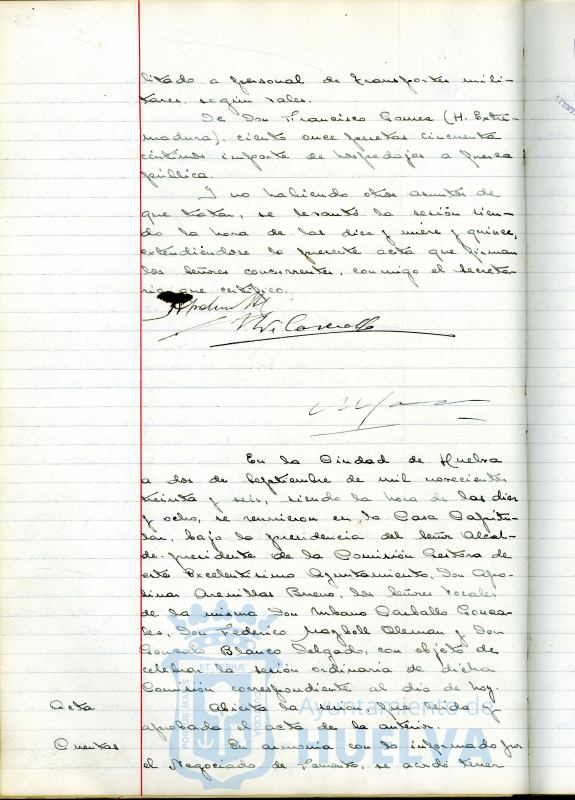 litado a personal de transportes mili-
tares, según vales.
De Don Francisco Gomez (H. Extre-
madura), ciento once pesetas cincuenta
centimos importe de hospedajes a fuerza
pública.
Y no habiendo otros asuntos de
que tratar, se levantó la sesión sien-
do la hora de las diez y nueve y quince,
extendiéndose la presente acta que firman
los Señores concurrentes, conmigo el Secreta-
rio que certifico.
En la Ciudad de Huelva
a dos de Septiembre de mil novecientos
treinta y seis, siendo la hora de las diez
y ocho, se reunieron en la Casa Capitu-
lar, bajo la presidencia del Señor Alcal-
de-presidente de la Comisión Gestora de
este Excelentísimo Ayuntamiento, Don Apo-
linar Arenillas Bueno, los Señores Vocales
de la misma Don Urbano Carballo Gonza-
lez, Don Federico Alemán y Don
Gonzalo Blanco Delgado, con objeto de
celebrar la sesión ordinaria de dicha
Comisión correspondiente al día de hoy.
Acta Abierta la sesión fue leida y
aprobada el acta de la anterior.
Cuentas En armonía con lo informado por
el Negociado de Fomento, se acordó tener
Ayuntamiento de
HUELVA